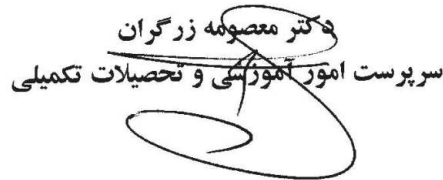 دکتر معصومه زرگران
سرپرست امور آموزشی و تحصیلات تکمیلی